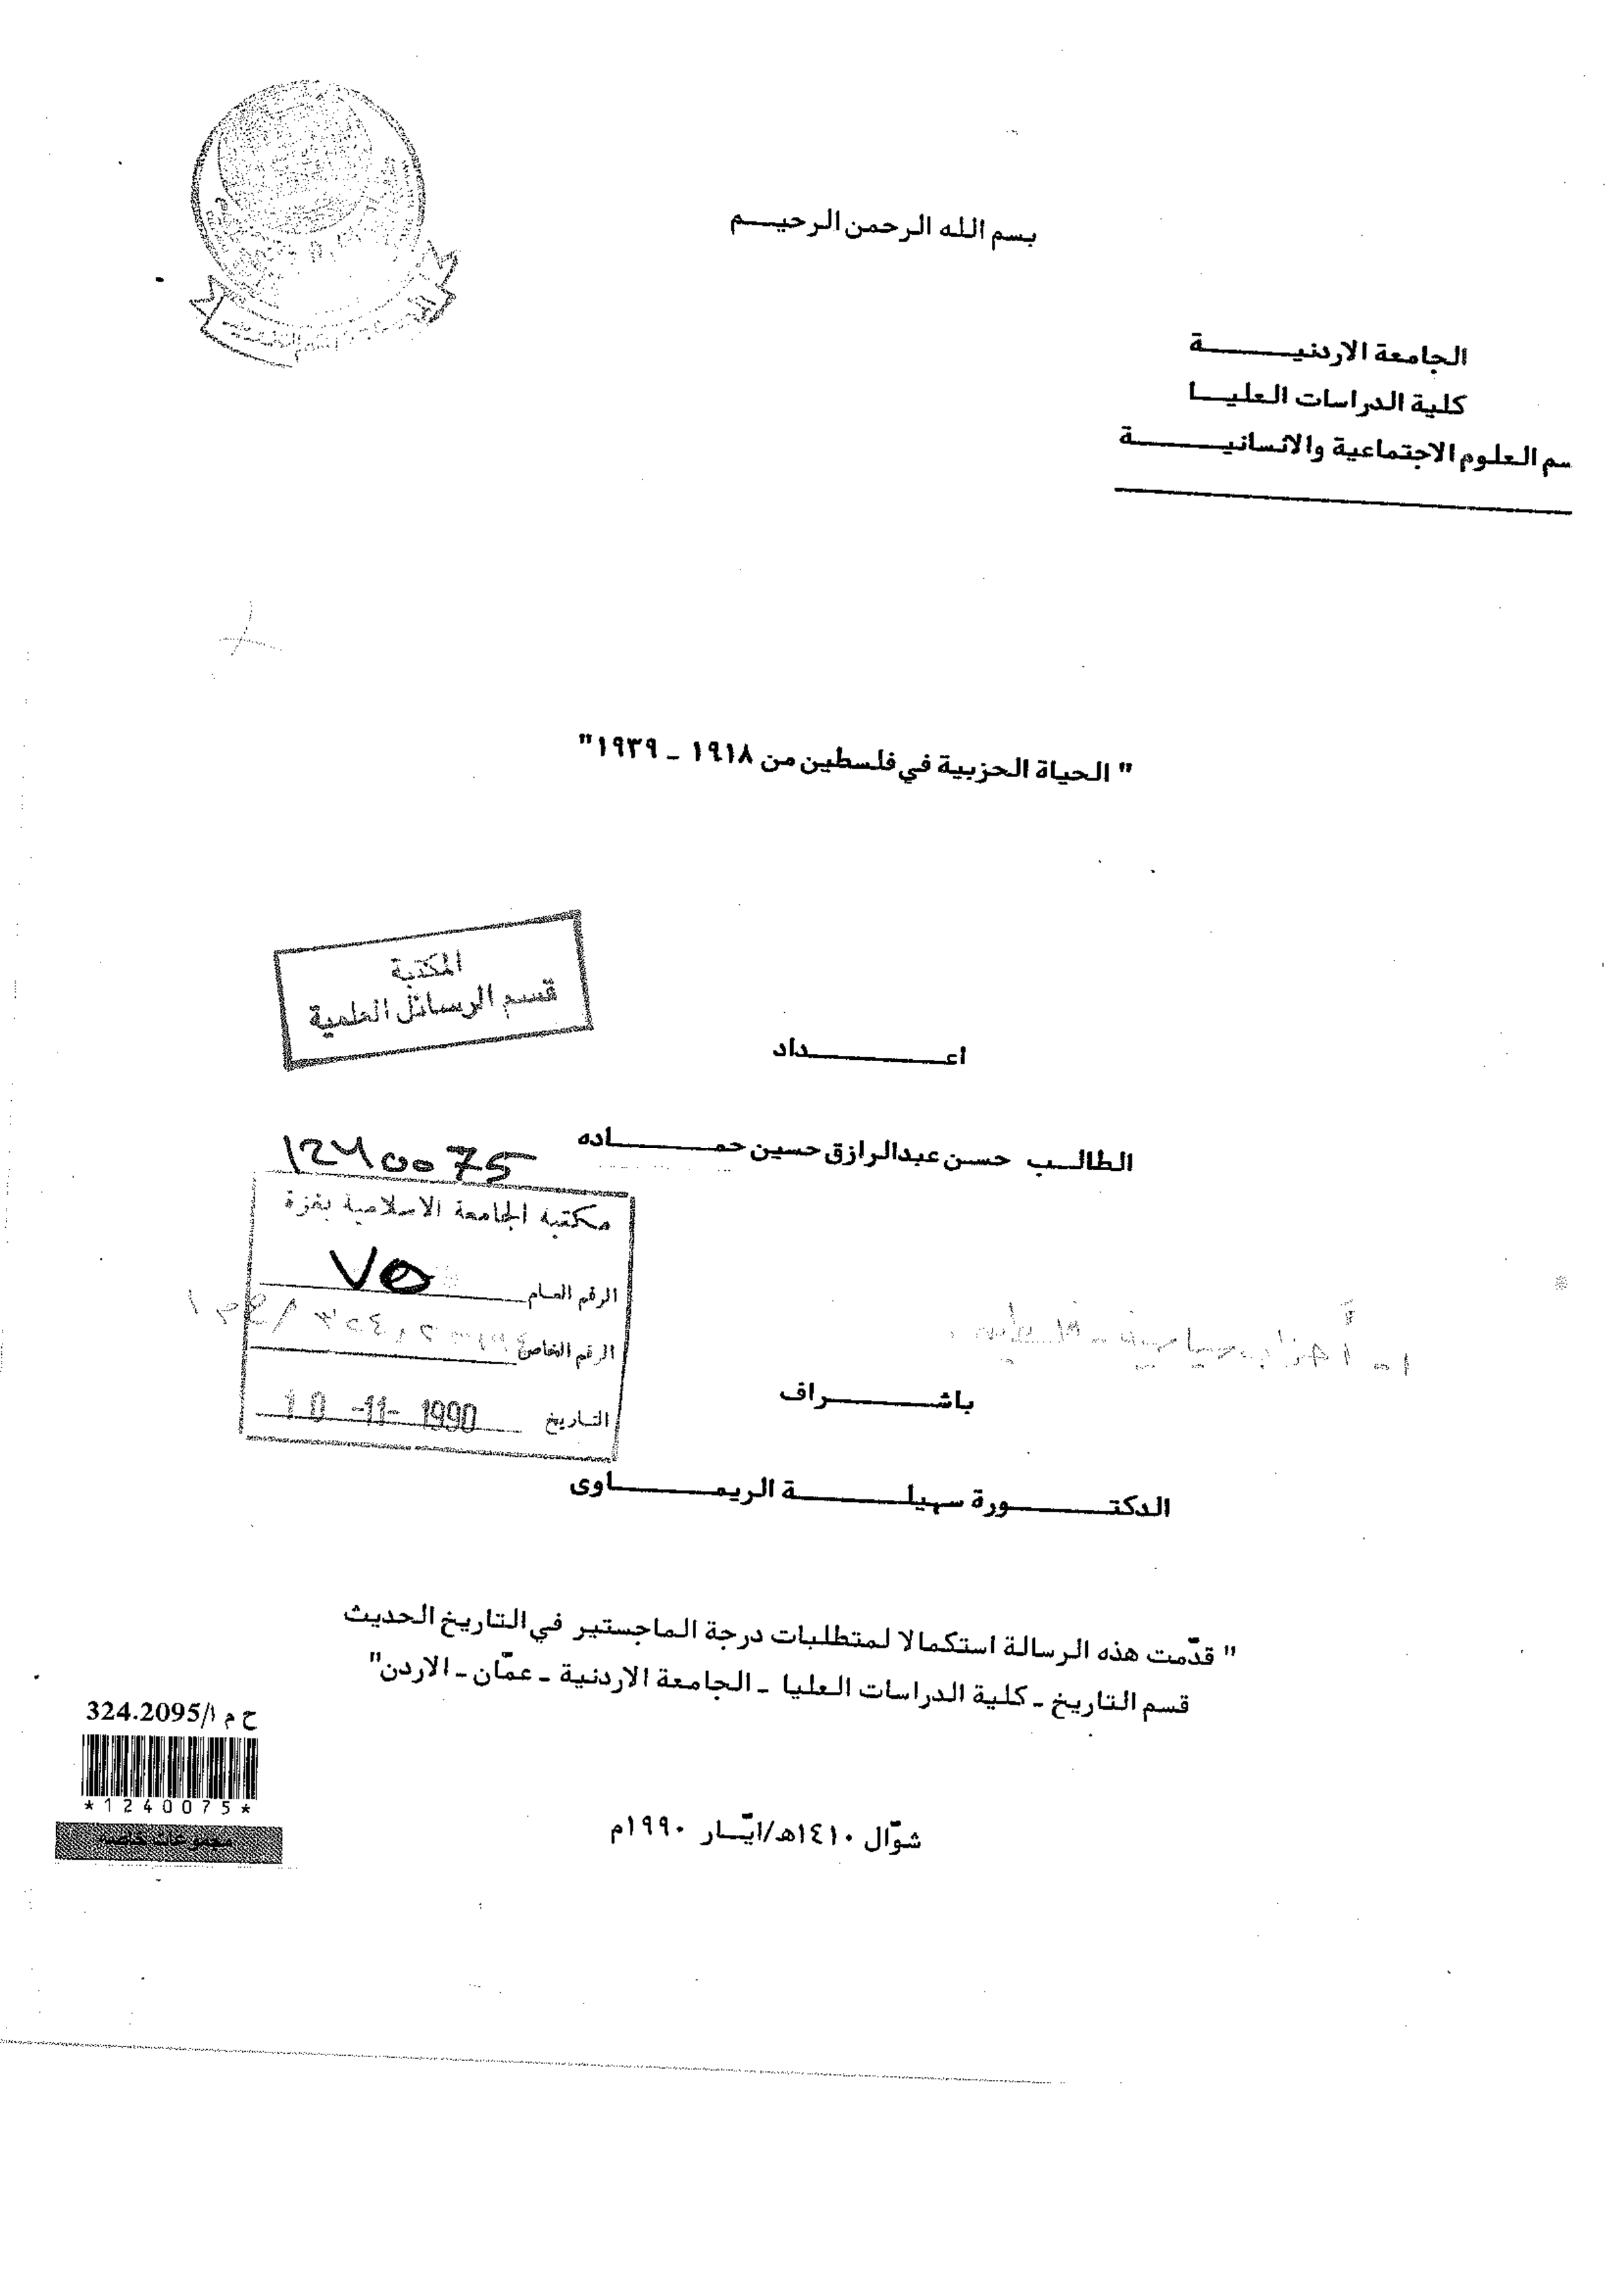 بسم الله الرحمن الرحيم
الجامعة الاردنية
كلية الدراسات العليا
سم العلوم الاجتماعية والانسانية
" الحياة الحزبية في فلسطين من ١٩١٨ - ١٩٣٩"
المكتبة
قسم الرسائل العلمية
اعداد
الطالب حسن عبدالرازق حسين حماده
1240075
مكتبة الجامعة الاسلامية بغزة
الرقم العام ٧٥
الرقم الخاص
التاريخ 10 -11- 1990
باشراف
الدكتورة سهيلة الريماوى
" قدّمت هذه الرسالة استكمالا لمتطلبات درجة الماجستير في التاريخ الحديث
قسم التاريخ - كلية الدراسات العليا - الجامعة الاردنية - عمّان - الاردن"
324.2095/ح م ا
*1240075*
مجموعات خاصة
شوّال ١٤١٠هـ/ايّار ١٩٩٠م